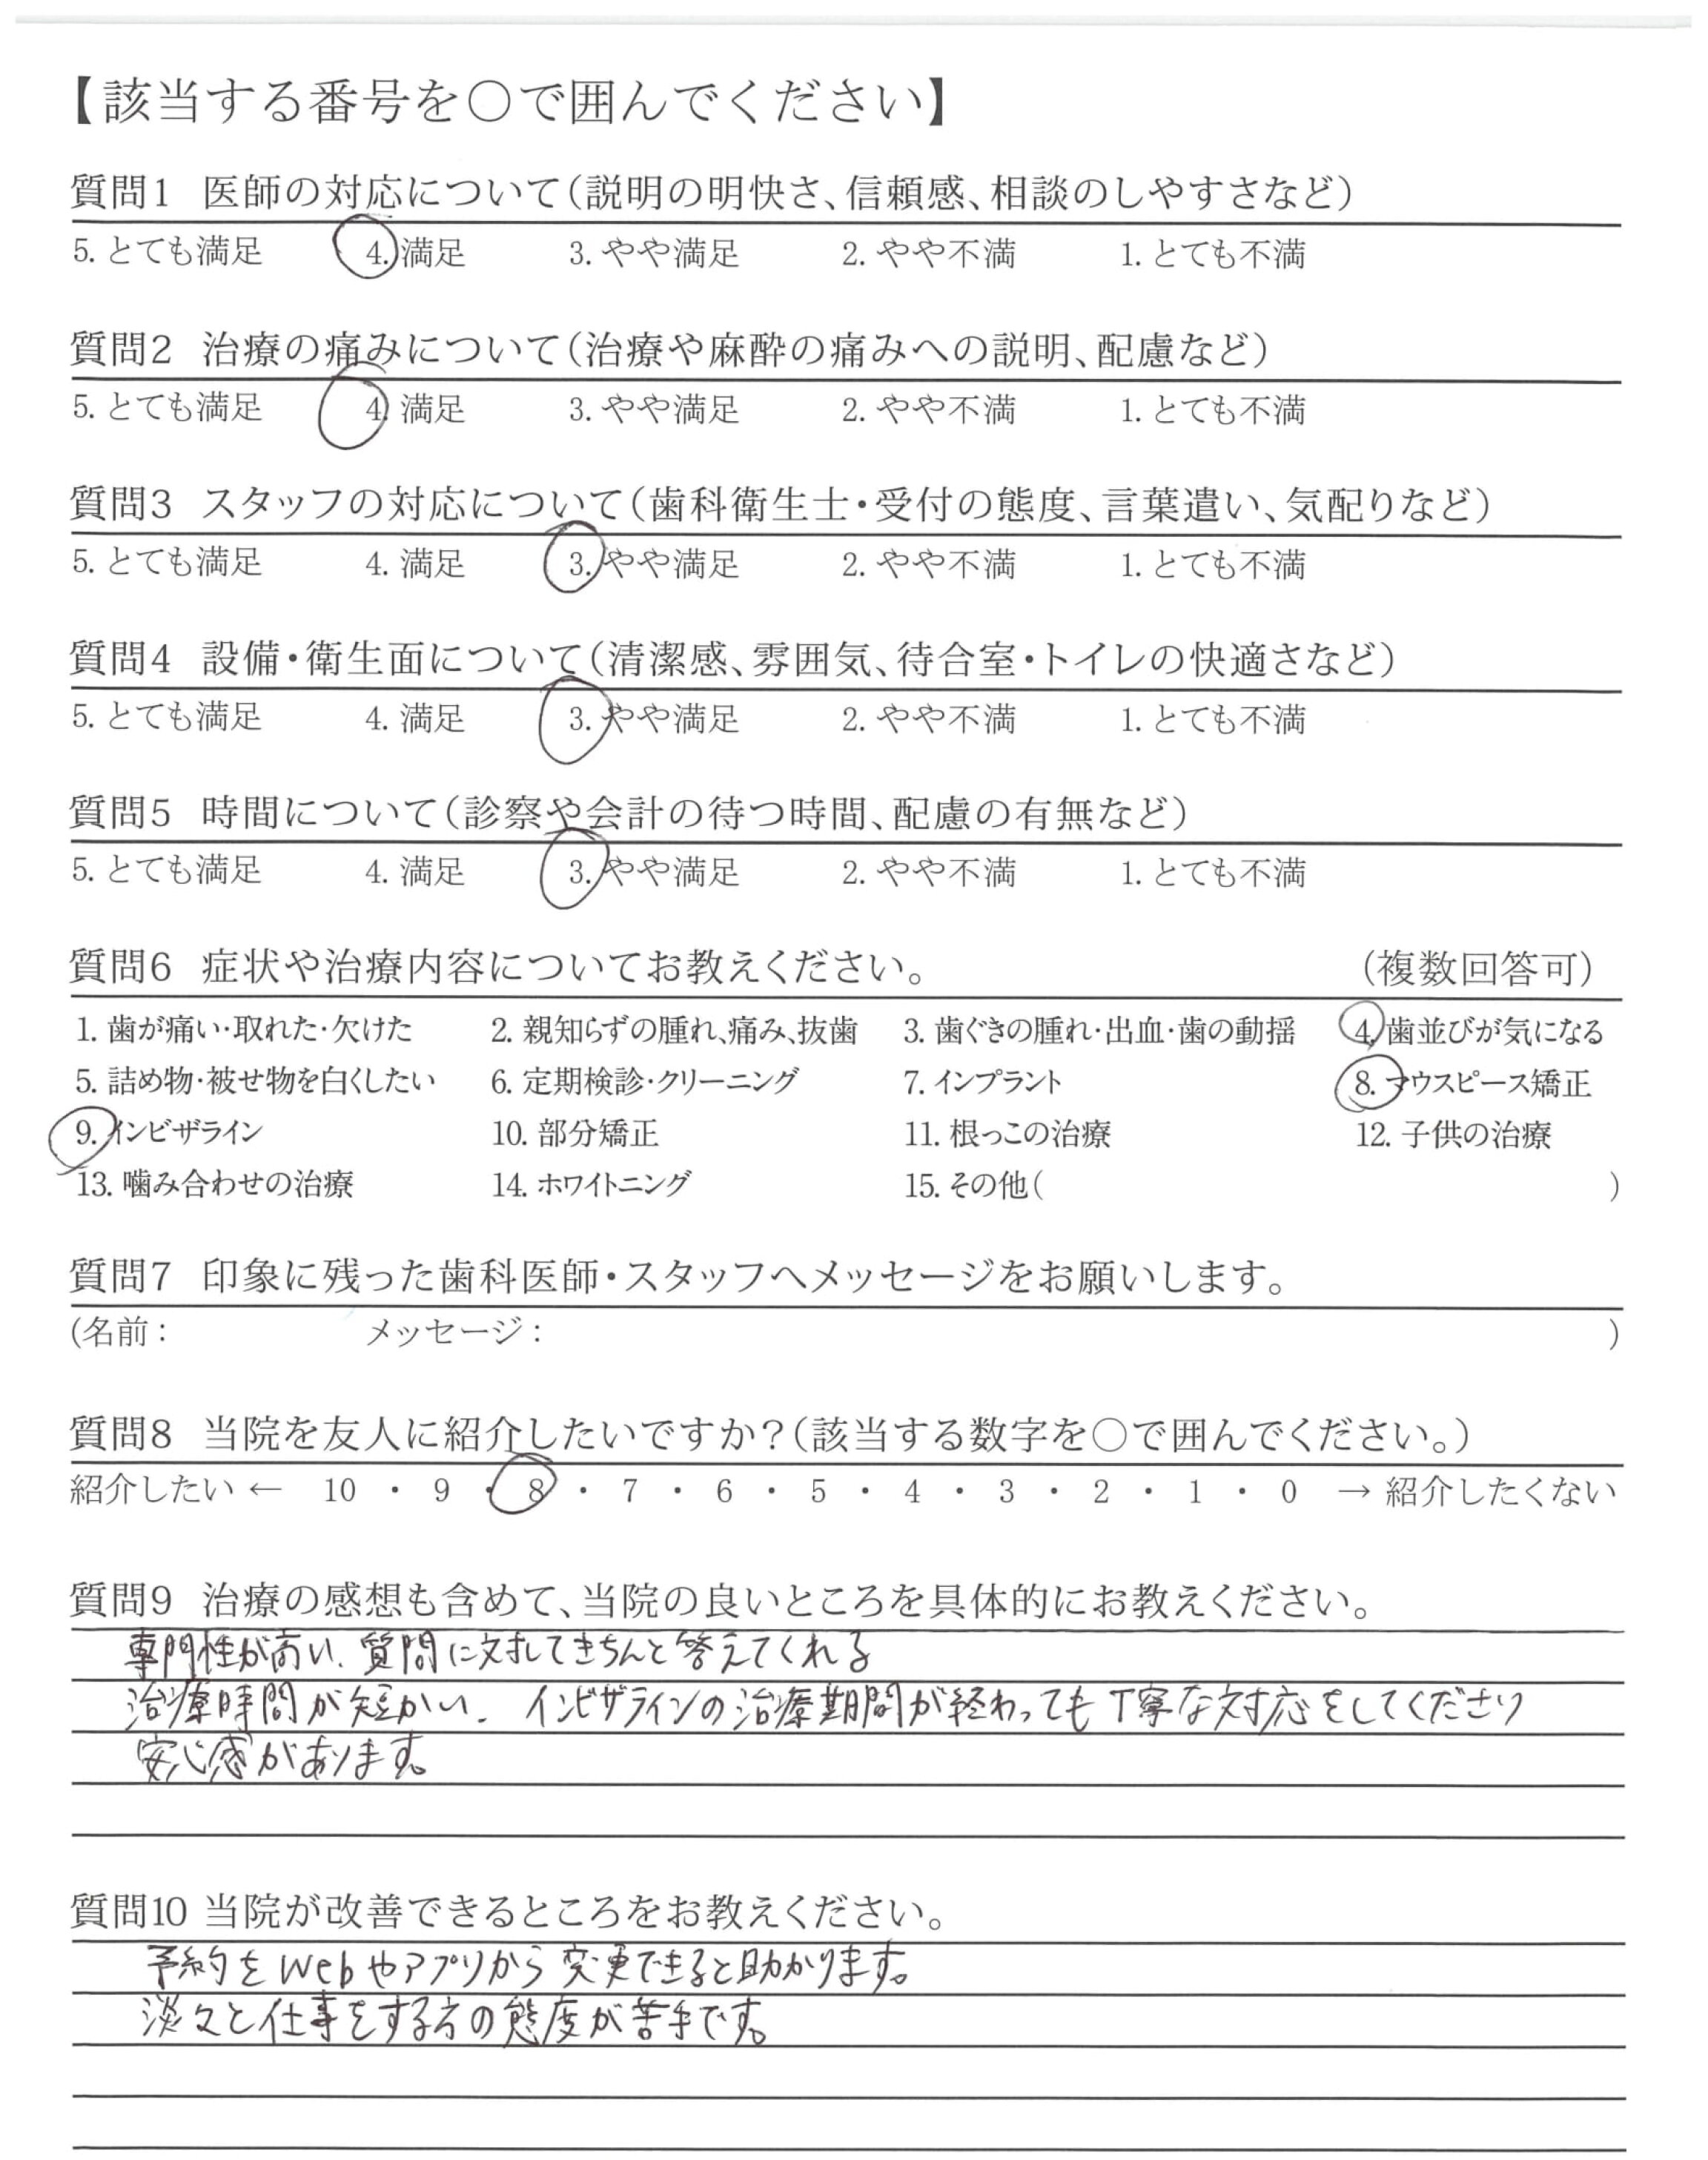 【該当する番号を○で囲んでください】
質問1 医師の対応について(説明の明快さ、信頼感、相談のしやすさなど)
5. とても満足 4. 満足 3. やや満足 2. やや不満 1. とても不満
質問2 治療の痛みについて(治療や麻酔の痛みへの説明、配慮など)
5. とても満足 4. 満足 3. やや満足 2. やや不満 1. とても不満
質問3 スタッフの対応について(歯科衛生士・受付の態度、言葉遣い、気配りなど)
5. とても満足 4. 満足 3. やや満足 2. やや不満 1. とても不満
質問4 設備・衛生面について(清潔感、雰囲気、待合室・トイレの快適さなど)
5. とても満足 4. 満足 3. やや満足 2. やや不満 1. とても不満
質問5 時間について(診察や会計の待つ時間、配慮の有無など)
5. とても満足 4. 満足 3. やや満足 2. やや不満 1. とても不満
質問6 症状や治療内容についてお教えください。 (複数回答可)
1. 歯が痛い・取れた・欠けた 2. 親知らずの腫れ、痛み、抜歯 3. 歯ぐきの腫れ・出血・歯の動揺 4. 歯並びが気になる
5. 詰め物・被せ物を白くしたい 6. 定期検診・クリーニング 7. インプラント 8. マウスピース矯正
9. インビザライン 10. 部分矯正 11. 根っこの治療 12. 子供の治療
13. 噛み合わせの治療 14. ホワイトニング 15. その他( )
質問7 印象に残った歯科医師・スタッフへメッセージをお願いします。
(名前: メッセージ: )
質問8 当院を友人に紹介したいですか?(該当する数字を○で囲んでください。)
紹介したい ← 10 ・ 9 ・ 8 ・ 7 ・ 6 ・ 5 ・ 4 ・ 3 ・ 2 ・ 1 ・ 0 → 紹介したくない
質問9 治療の感想も含めて、当院の良いところを具体的にお教えください。
専門性が高い、質問に対してきちんと答えてくれる
治療時間が短かい、インビザラインの治療期間が終わっても丁寧な対応をしてくださり
安心感があります。
質問10 当院が改善できるところをお教えください。
予約をWebやアプリから変更できると助かります。
淡々と仕事をする方の態度が苦手です。